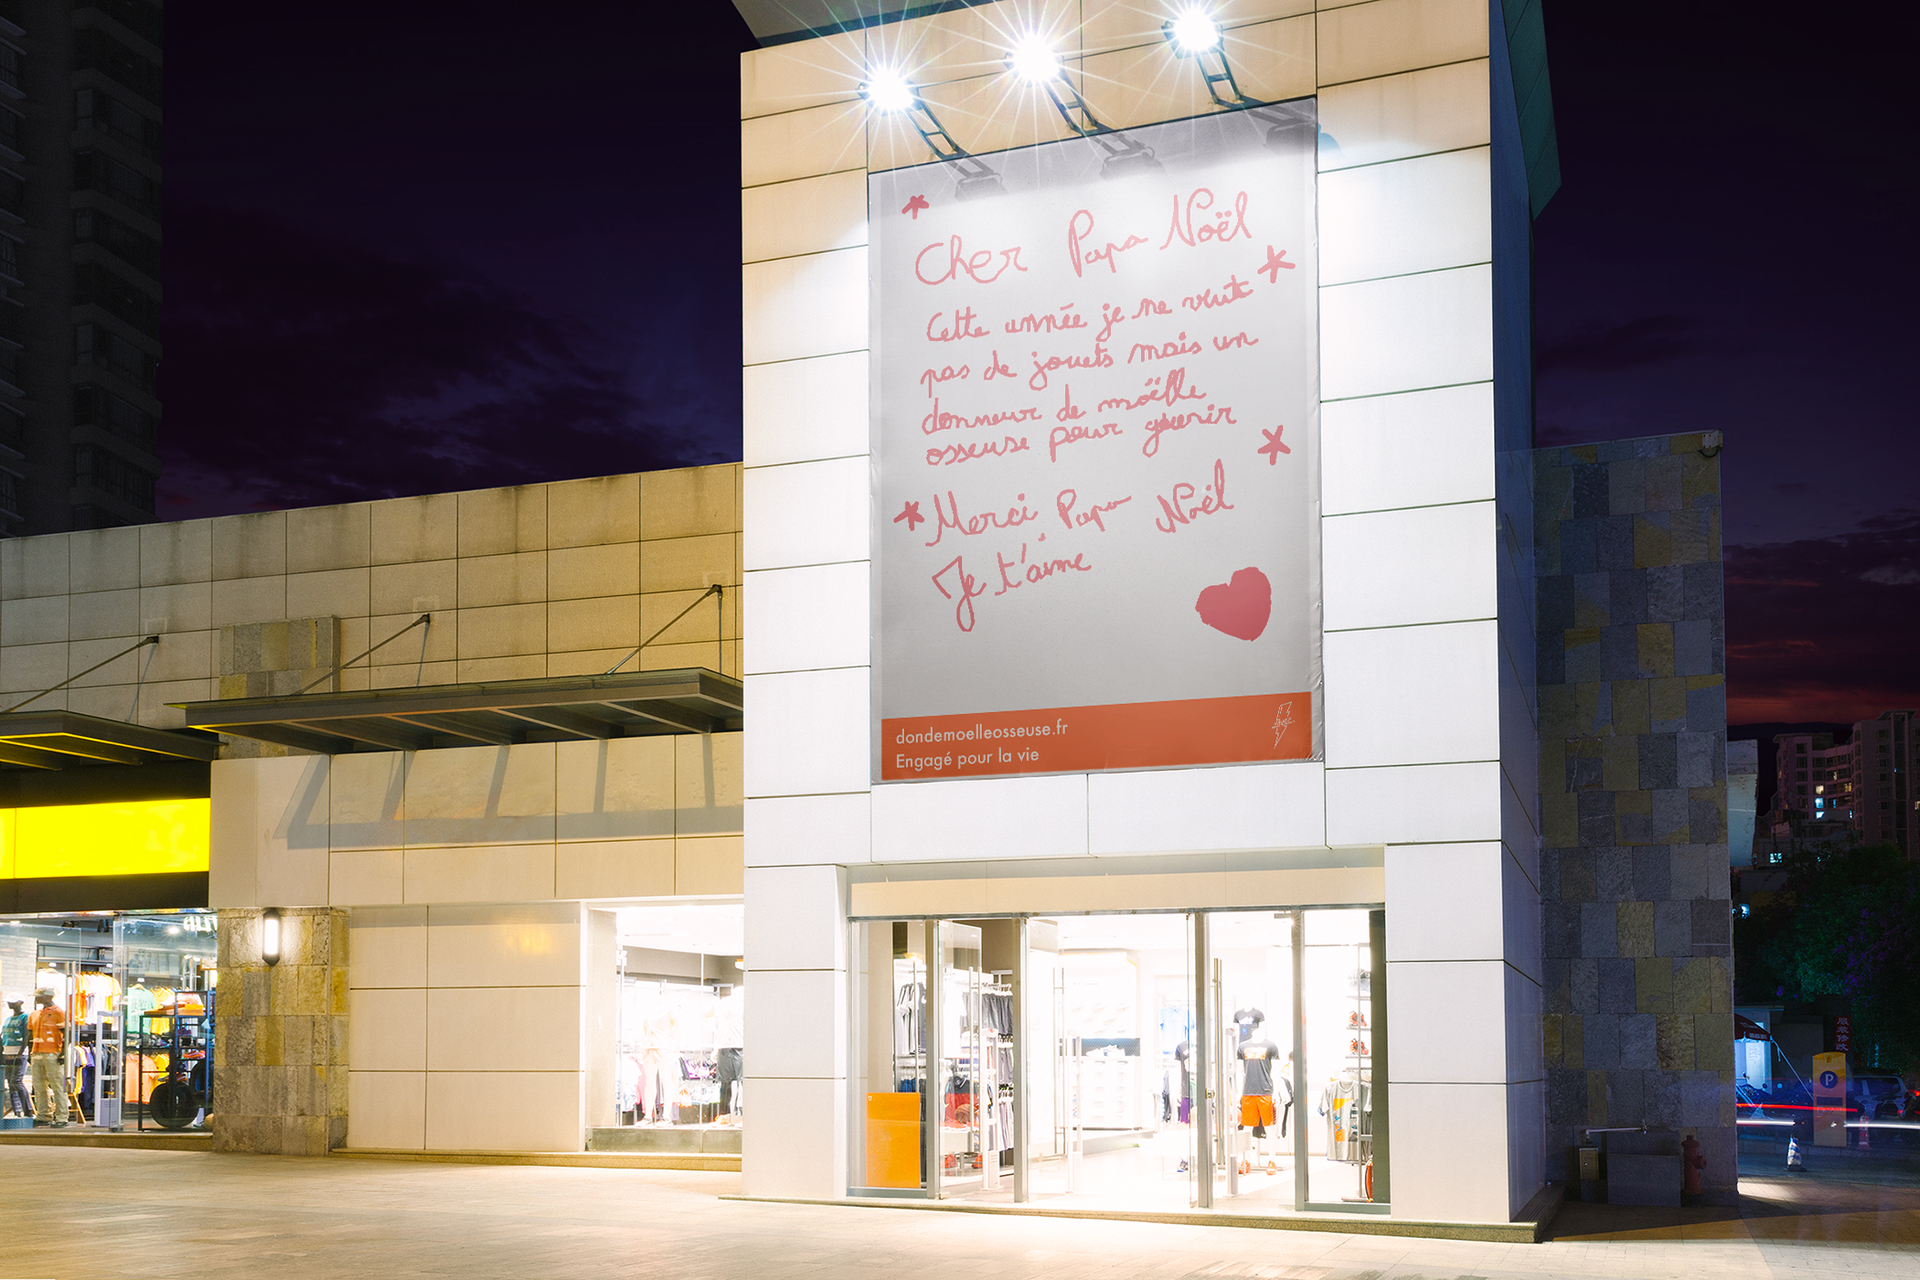 Cher Papa Noël
Cette année je ne veut
pas de jouets mais un
donneur de moëlle
osseuse pour guerir
Merci Papa Noël
Je t'aime
dondemoelleosseuse.fr
Engagé pour la vie
P
服装修改